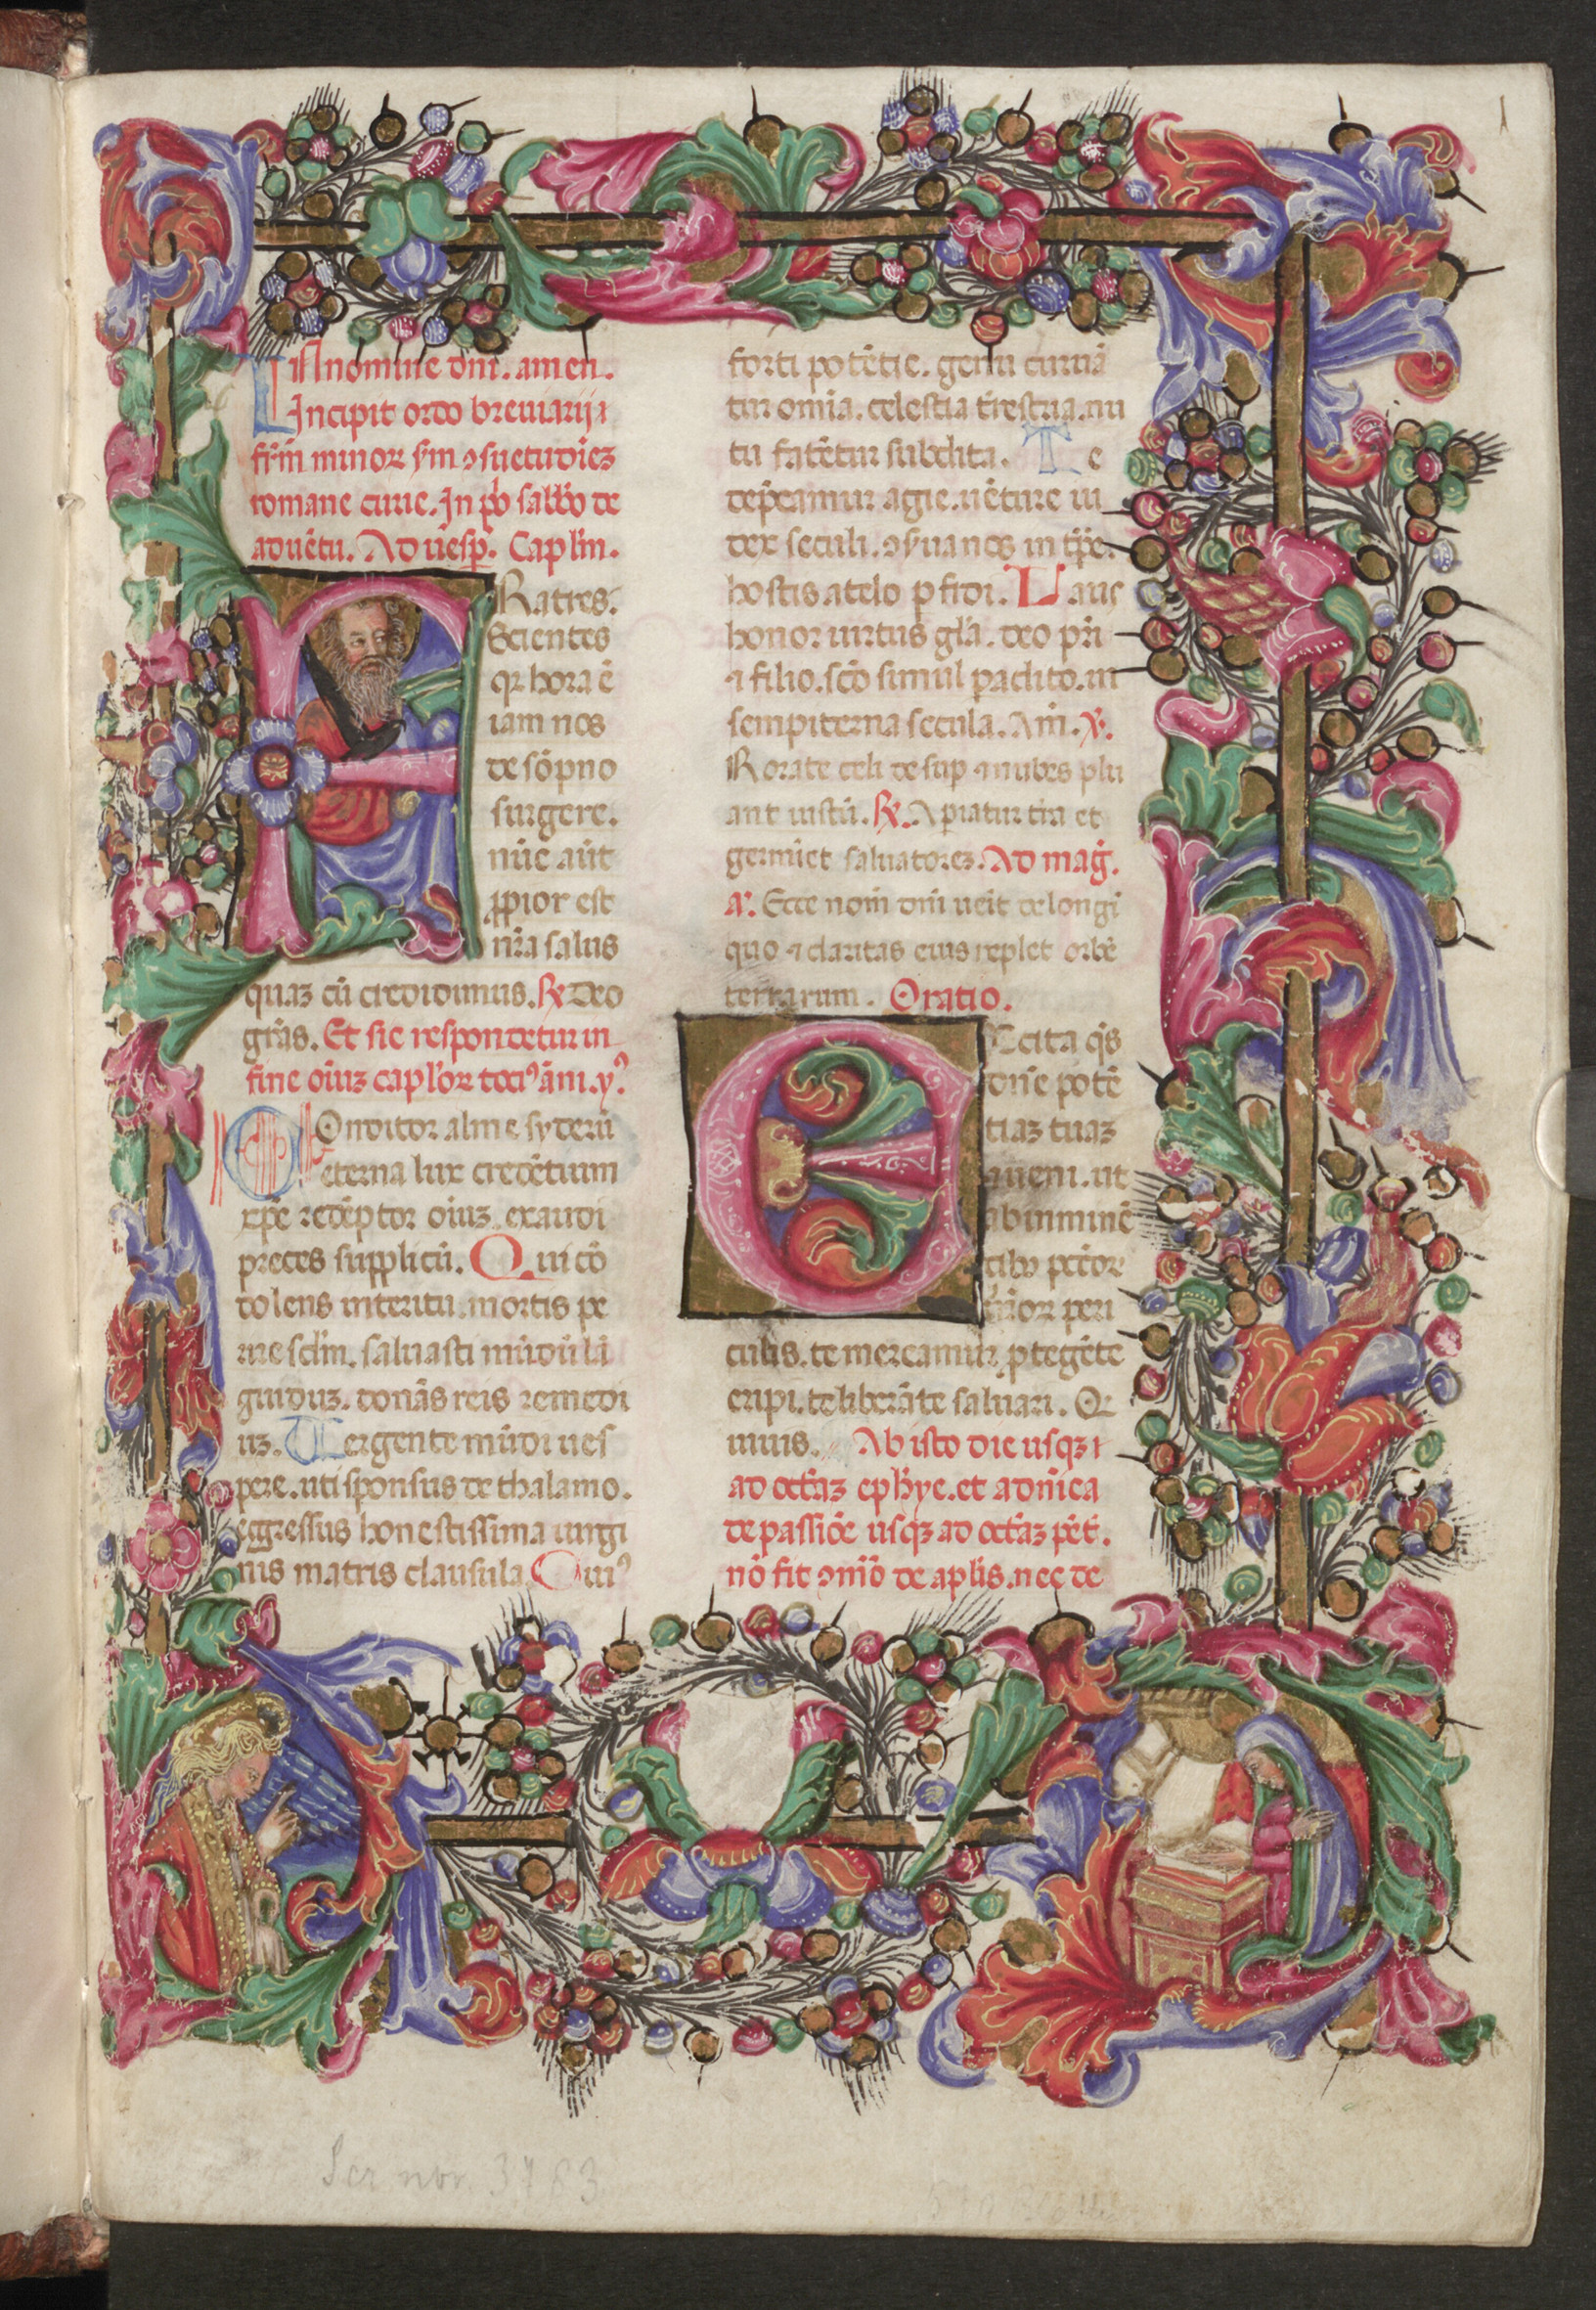 IN nomine dñi. amen.
Incipit ordo breuiarij
fr̃m minor s̃m ꝯsuetudiẽꝫ
romane curie. In p̃o sabb̃o de
aduẽtu. Ad uesp̃. Capl̃m.
FRatres.
Scientes
qꝛ hora ẽ
iam nos
de sõpno
surgere.
nũc aũt
ꝓpior est
nr̃a salus
quaꝫ cũ credidimus. ℟ Deo
gr̃as. Et sic respondetur in
fine oĩuꝫ capl̃oꝝ toci⁹ ãni. ẏ⁹
COnditor alme syderũ
eterna lux credẽtium
xp̃e redẽptor oĩuꝫ exaudi
preces supplicũ. Qui cõ
dolens interitu. mortis pe
rire sc̃lm. saluasti mũdũ lã
guiduꝫ. donãs reis remedi
uꝫ. Uergente mũdi ues
pere. uti sponsus de thalamo.
egressus honestissima uirgi
nis matris clausula Cui⁹
forti potẽtie. genu curuã
tur om̃ia. celestia tr̃estria. nu
tu fatẽtur subdita. Te
dep̃camur agie. uẽture iu
dex seculi. ꝯserua nos in tp̃e.
hostis a telo ꝑfidi. Laus
honor uirtus gl̃a. deo pr̃i
⁊ filio. sc̃o simul paclito. in
sempiterna secula. Am̃. ℣.
Rorate celi desup ⁊ nubes plu
ant iustũ. ℟. Apiatur tr̃a et
germiet saluatoreꝫ. Ad mag̃.
añ. Ecce nom̃ dñi ueĩt de longi
quo ⁊ claritas eius replet orbẽ
terrarum. Oratio.
EXcita q̃s
dñe potẽ
tiaꝫ tuaꝫ
⁊ ueni. ut
ab inminẽ
tibꝫ pctõꝝ
nr̃oꝝ peri
culis. te mereamur ꝓtegẽte
eripi. te liberãte saluari. Qui
uiuis. Ab isto die usqꝫ
ad oct̃aꝫ ephỹe. et a dñica
de passiõe usqꝫ ad oct̃aꝫ pẽt.
nõ fit ꝯm̃o de apl̃is. nec de
Ser nov. 3783
1